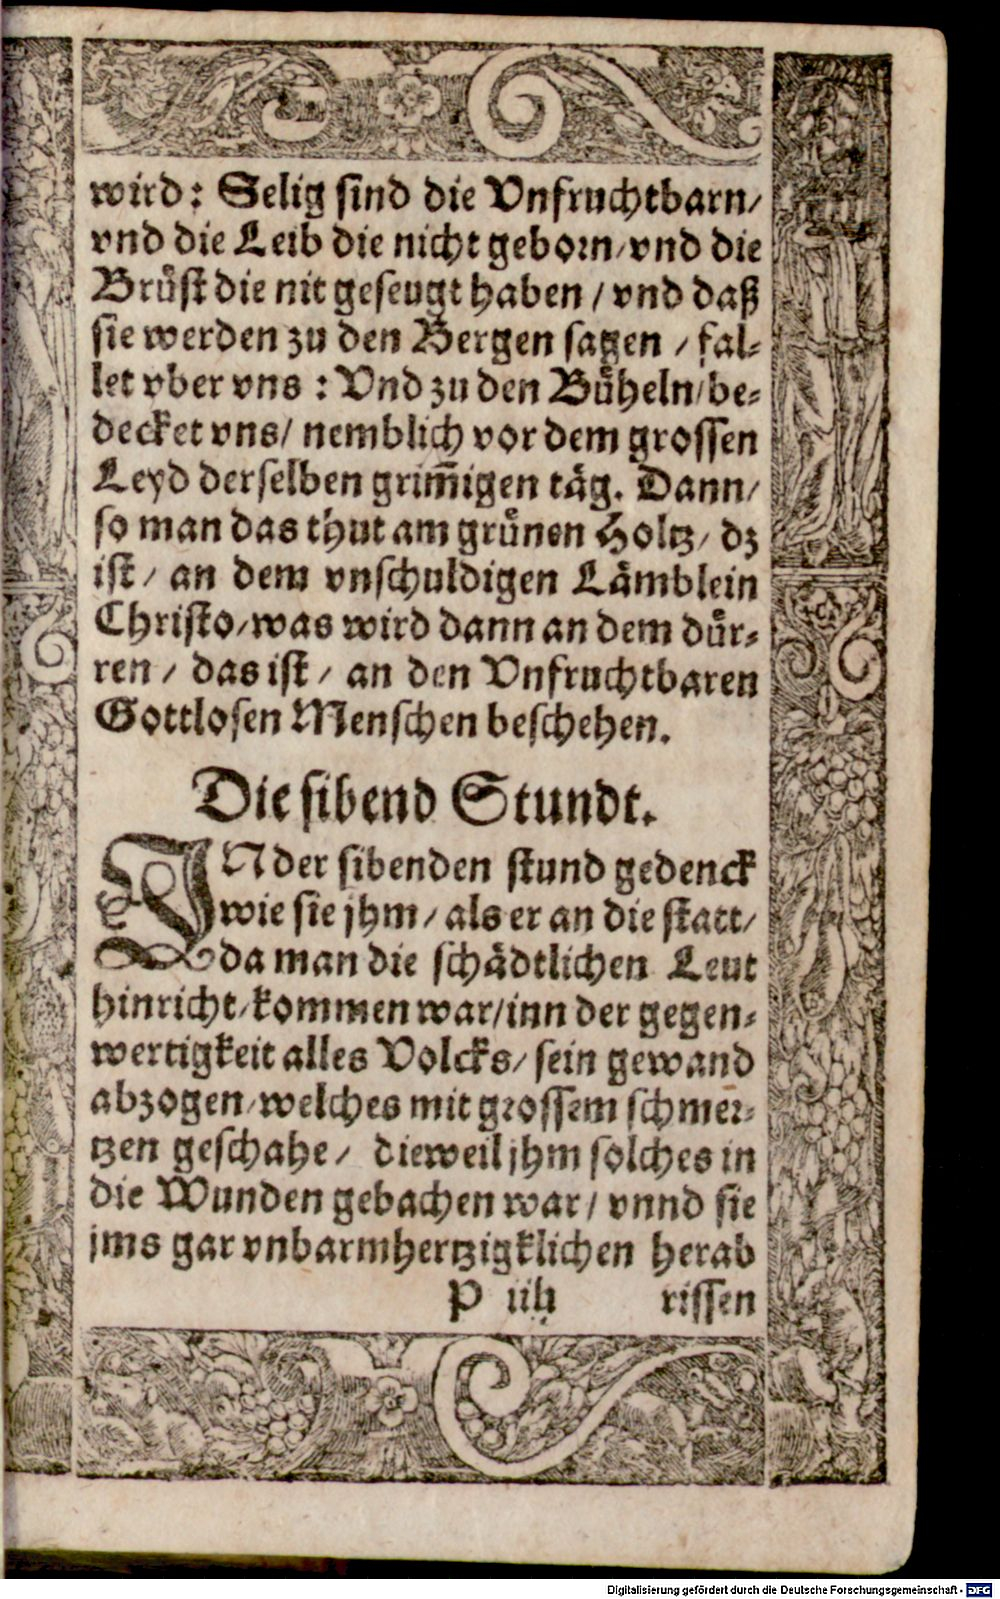 wird: Selig sind die Vnfruchtbarn/
vnd die Leib die nicht geborn/vnd die
Bruͤst die nit geseugt haben / vnd daß
sie werden zu den Bergen sagen / fal-
let vber vns : Vnd zu den Buͤheln/be-
decket vns/ nemblich vor dem grossen
Leyd derselben grim̃igen taͤg. Dann/
so man das thut am gruͤnen Holtz/ dz
ist / an dem vnschuldigen Laͤmblein
Christo/was wird dann an dem duͤr-
ren / das ist / an den Vnfruchtbaren
Gottlosen Menschen beschehen.
Die sibend Stundt.
IN der sibenden stund gedenck
wie sie jhm/ als er an die statt/
da man die schaͤdtlichen Leut
hinricht/kommen war/inn der gegen-
wertigkeit alles Volcks/ sein gewand
abzogen/welches mit grossem schmer-
tzen geschahe / dieweil jhm solches in
die Wunden gebachen war / vnnd sie
jms gar vnbarmhertzigklichen herab
P iiij rissen
Digitalisierung gefördert durch die Deutsche Forschungsgemeinschaft - DFG